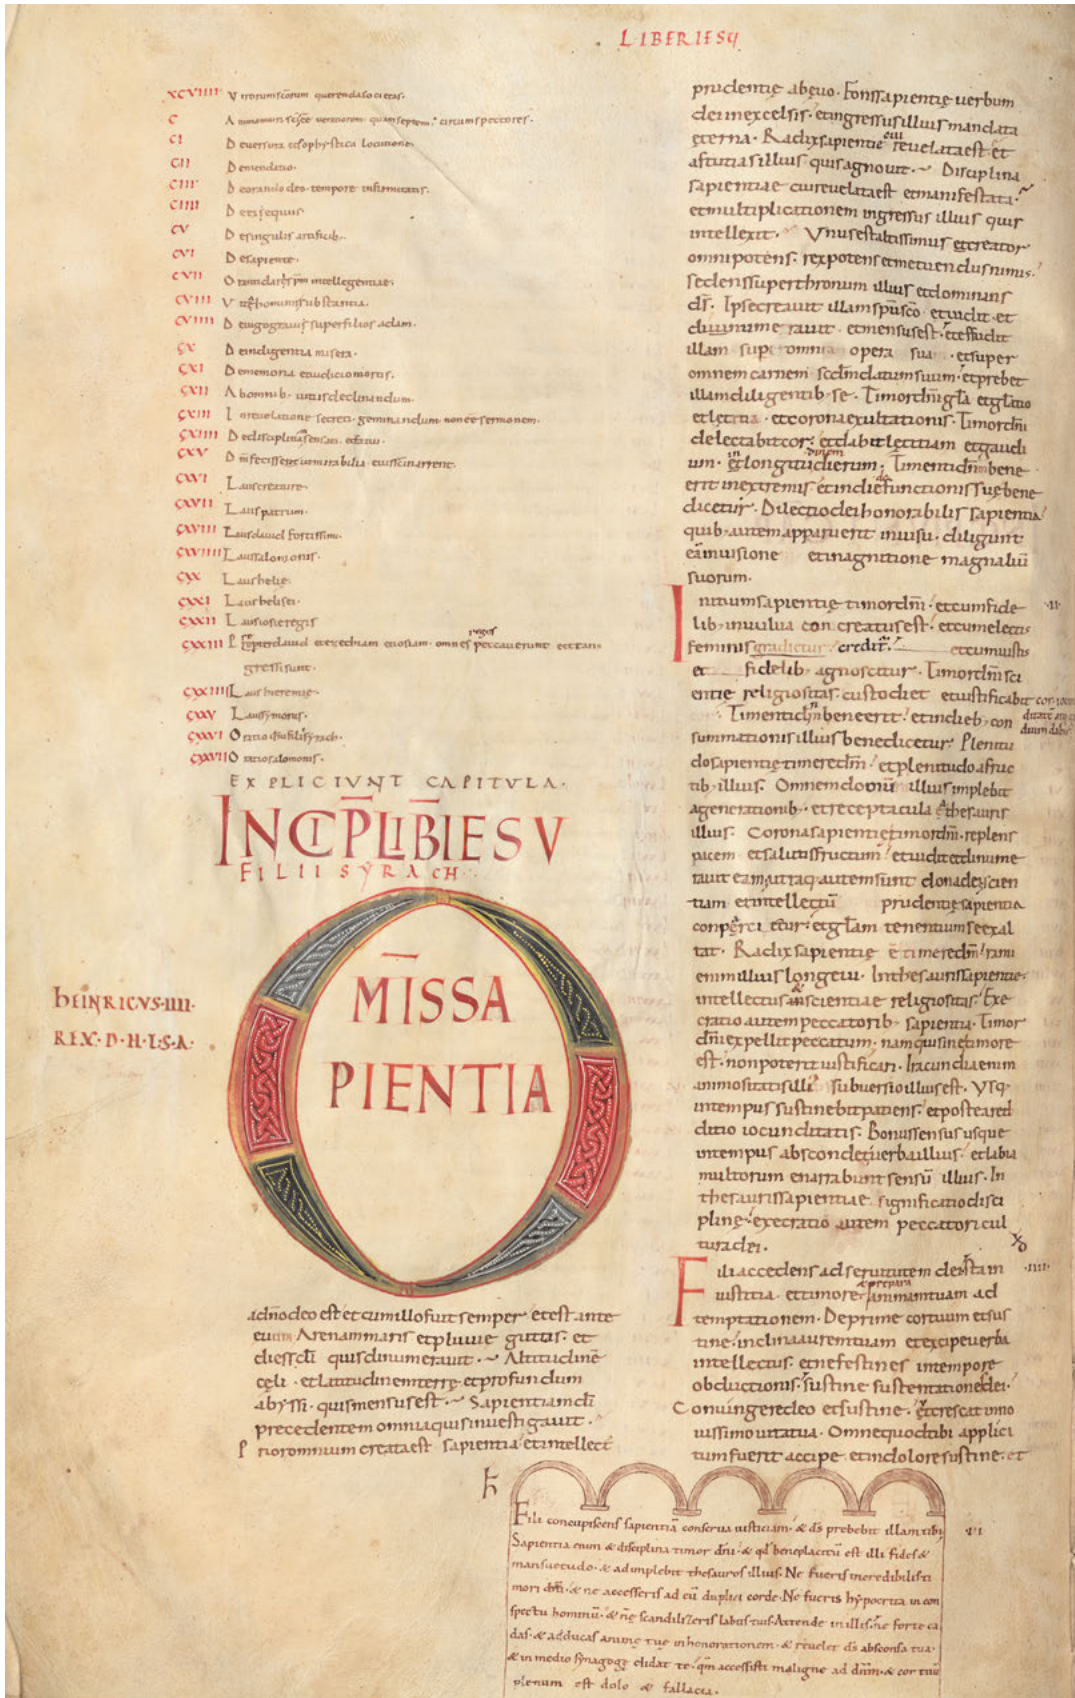 LIBER IESV
XCVIIII Virorum scorum querenda societas.
C
CI De versuta et sophystica locutione.
CII De mendatio.
CIII De orando deo tempore infirmitatis.
CIIII De exsequiis
CV De singulis artificib;
CVI De sapiente.
CVII
CVIII
CVIIII De iugo gravi super filios adam.
CX De indigentia misera.
CXI De memoria et iudicio mortis.
CXII Ab omnib; vitiis declinandum.
CXIII In revelatione secreti geminandum non esse sermonem.
CXIIII De disciplina
CXV
CXVI Laus creature.
CXVII Laus patrum.
CXVIII Laus david fortissimi.
CXVIIII Laus salomonis.
CXX Laus helie.
CXXI Laus helisei.
CXXII Laus iosie regis
CXXIII P̅ter david et ezechiam et iosiam. omnes reges peccaverunt et tran
gressi sunt.
CXXIIII Laus hieremie.
CXXV Laus symonis.
CXXVI Oratio ihu filii syrach.
CXXVII Oratio salomonis.
EXPLICIUNT CAPITULA.
INCIP̅ LIB̅ IESV
FILII SYRACH
OM̅IS SA
PIENTIA
HEINRICVS IIII.
REX. D. H. L. S. A.
a dn̅o deo est et cum illo fuit semper et est ante
evum Arenam maris et pluvie guttas. et
dies scl̅i quis dinumeravit. Altitudine̅
cęli. et latitudinem terrę. et profundum
abyssi. quis mensus est. Sapientiam di̅
precedentem omnia quis investigavit.
Prior omnium creata est sapientia et intellect
prudentię ab ęvo. Fons sapientię verbum
dei in excelsis. et ingressus illius mandata
ęterna. Radix sapientię cui revelata est et
astutias illius quis agnovit. Disciplina
sapientiae cui revelata est et manifestata.
et multiplicationem ingressus illius quis
intellexit. Unus est altissimus et creator
omnipotens. rex potens et metuendus nimis.
sedens super thronum illius et dominans
ds̅. Ipse creavit illam spu̅ sco̅ et vidit et
dinumeravit. et mensus est. et effudit
illam super omnia opera sua. et super
omnem carnem scdm̅ datum suum. et prebet
illam diligentib; se. Timor dni̅ gl̅a et gl̅atio
et lętitia. et corona exultationis. Timor dni̅
delectabit cor. et dabit lętitiam et gaudi
um. et in longitudinem dierum. Timenti dn̅m bene
erit in extremis et in die defunctionis suę bene
dicetur. Dilectio dei honorabilis sapientia
quib; autem apparuerit in visu. diligunt
ea̅ in visione et in agnitione magnaliu̅
suorum.
Initium sapientię timor dni̅. et cum fide .II.
lib; in vulva concreatus est. et cum electis
feminis gradietur credit. et cum iustis
et fidelib; agnoscitur. Timor dni̅ sci
entię religiositas. custodiet et iustificabit cor. iocun
ditate̅ atq gaudium dabit
Timenti dn̅m bene erit. et in dieb; con
summationis illius benedicetur. Plenitu
do sapientię timere dm̅. et plenitudo a fruc
tib; illius. Omnem domu̅ illius implebit
a generationib; et receptacula a thesauris
illius. Corona sapientię timor dni̅. replens
pacem et salutis fructum. et vidit et dinume
ravit eam. utraq; autem sunt dona dei. scien
tiam et intellectu̅ prudentię sapientia
et gl̅am tenentium se exal
tat. Radix sapientię e̅ timere dm̅. rami
enim illius longevi. In thesauris sapientie.
intellectus et scientiae religiositas. Exe
cratio autem peccatorib; sapientia. Timor
dni̅ expellit peccatum. nam qui sine timore
est. non poterit iustificari. Iracundia enim
animositatis illi subversio illius est. Usq;
in tempus sustinebit patiens. et postea red
ditio iocunditatis. Bonus sensus usque
in tempus abscondet verba illius. et labia
multorum enarrabunt sensu̅ illius. In
thesauris sapientiae significatio disci
plinę. execratio autem peccatori cul
tura dei.
Fili accedens ad servitutem dei sta in .III.
iustitia. et timore et prepara animam tuam ad
temptationem. Deprime cor tuum et sus
tine. inclina aurem tuam et excipe verba
intellectus. et ne festines in tempore
obductionis. sustine sustentationes dei.
Coniungere deo et sustine. ut crescat in no
vissimo vita tua. Omne quod tibi applici
tum fuerit accipe. et in dolore sustine. et
Fili concupiscens sapientia̅ conserva iusticiam. & ds̅ prebebit illam tibi. VI
Sapientia enim & disciplina timor dni̅. & qd̅ beneplacitu̅ est illi fides &
mansuetudo. & adimplebit thesauros illius. Ne fueris incredibilis ti
mori dni̅. & ne accesseris ad eu̅ duplici corde. Ne fueris hypocrita in con
spectu hominu̅. & ne scandalizeris labiis tuis. Attende in illis. ne forte ca
das. & adducas anime tue inhonorationem. & revelet ds̅ absconsa tua.
& in medio synagogę elidat te. qm̅ accessisti maligne ad dnm̅. & cor tuu̅
plenum est dolo & fallacia.